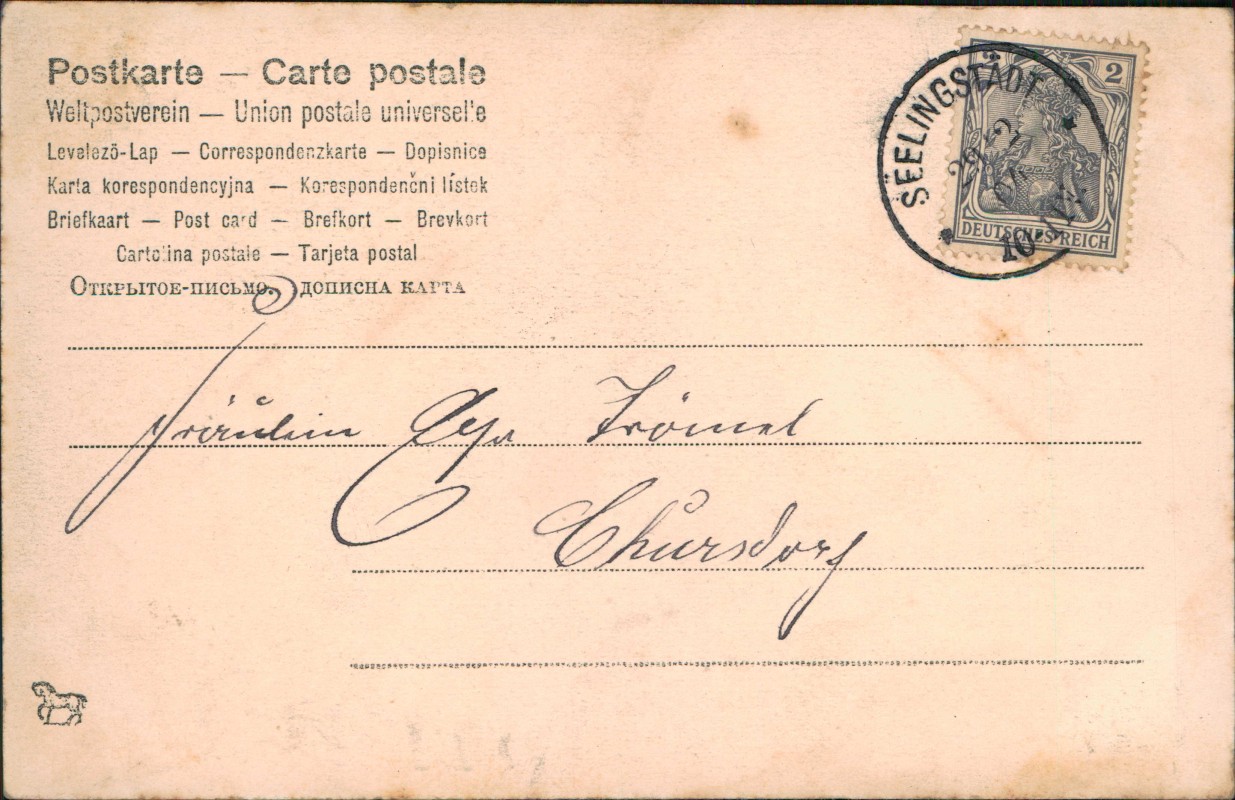 Postkarte — Carte postale
Weltpostverein — Union postale universelle
Levelező-Lap — Correspondenzkarte — Dopisnice
Karta korespondencyjna — Korespondenčni lístek
Briefkaart — Post card — Brefkort — Brevkort
Cartolina postale — Tarjeta postal
Открытое-письмо. дописна карта
SEELINGSTÄDT
2
DEUTSCHES REICH
Fräulein Trömel
Chursdorf